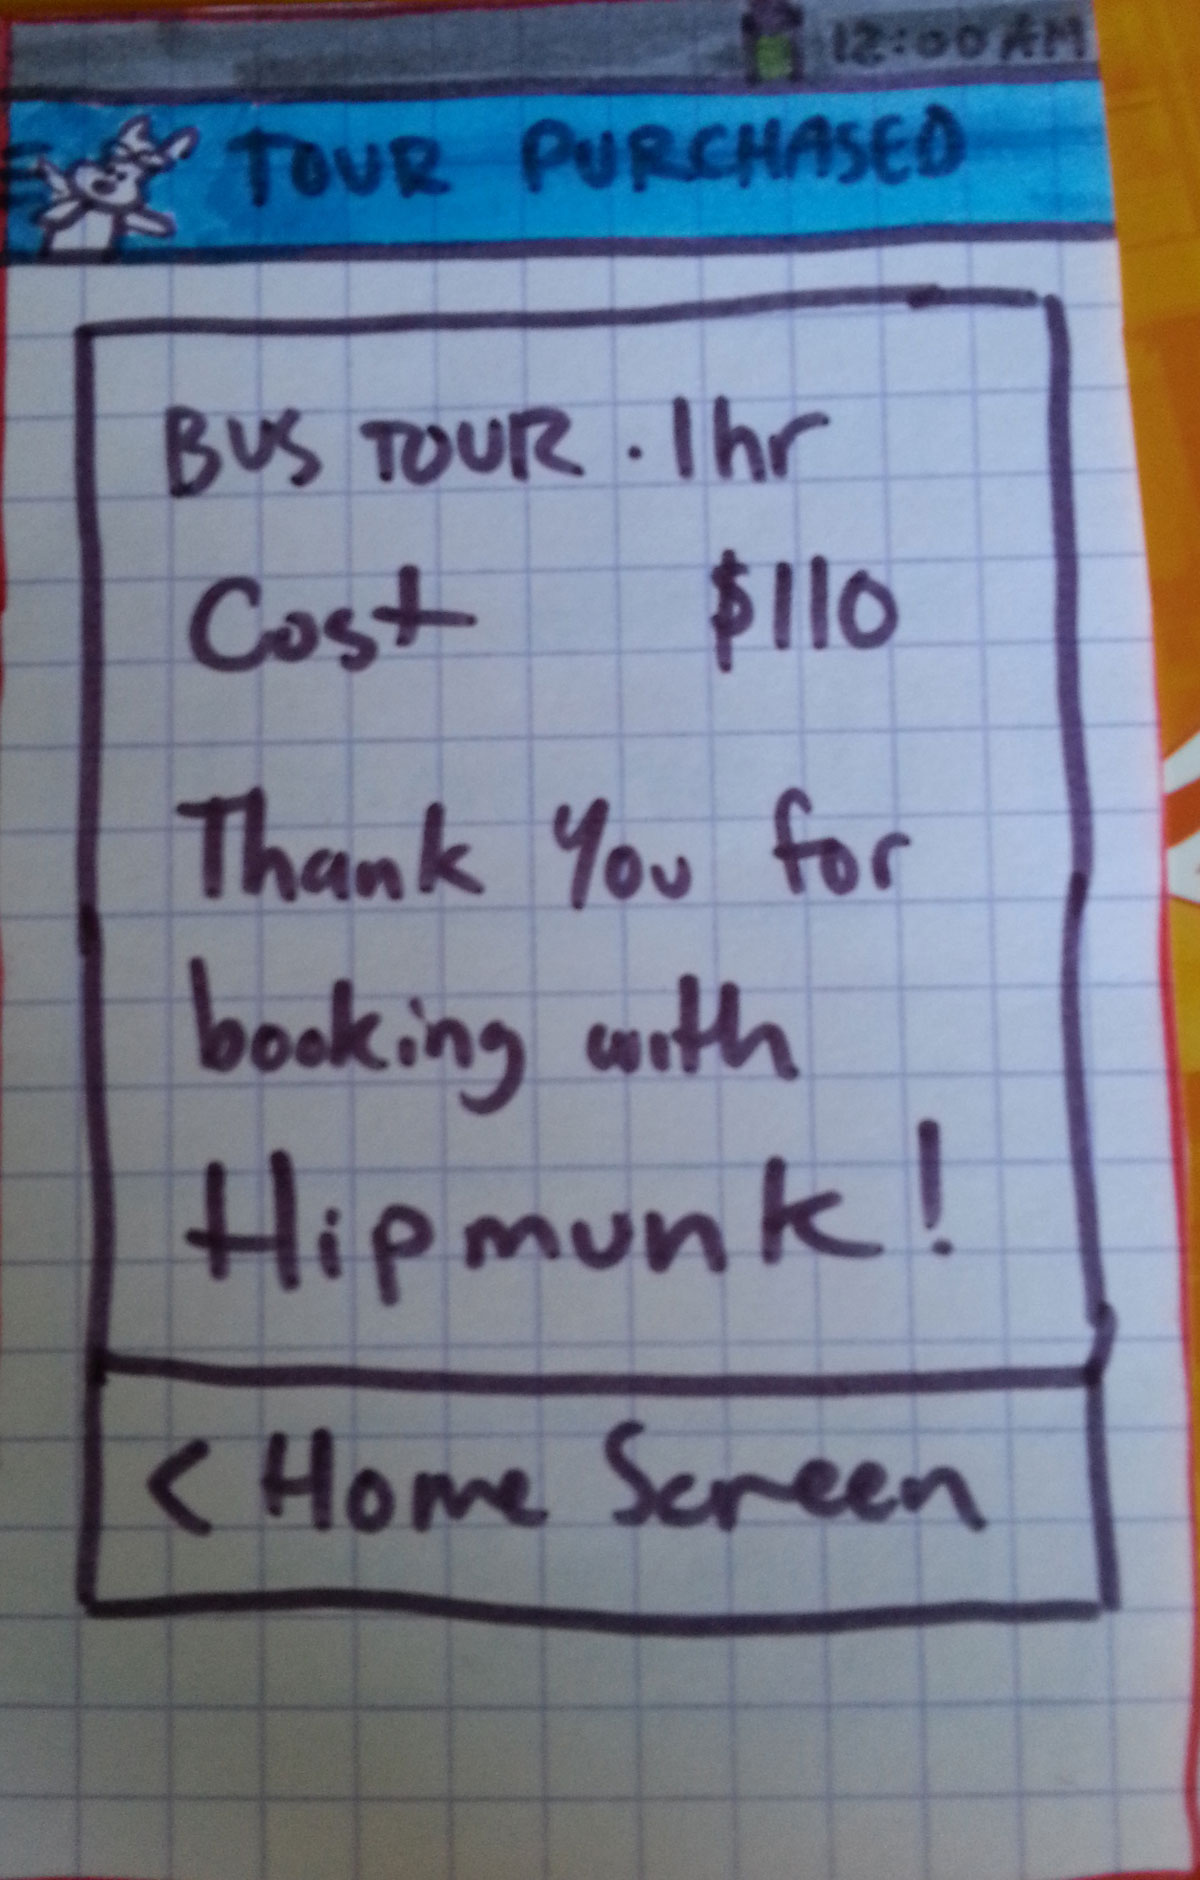 12:00 AM
TOUR PURCHASED
BUS TOUR . 1hr
Cost $110
Thank You for
booking with
Hipmunk!
< Home Screen